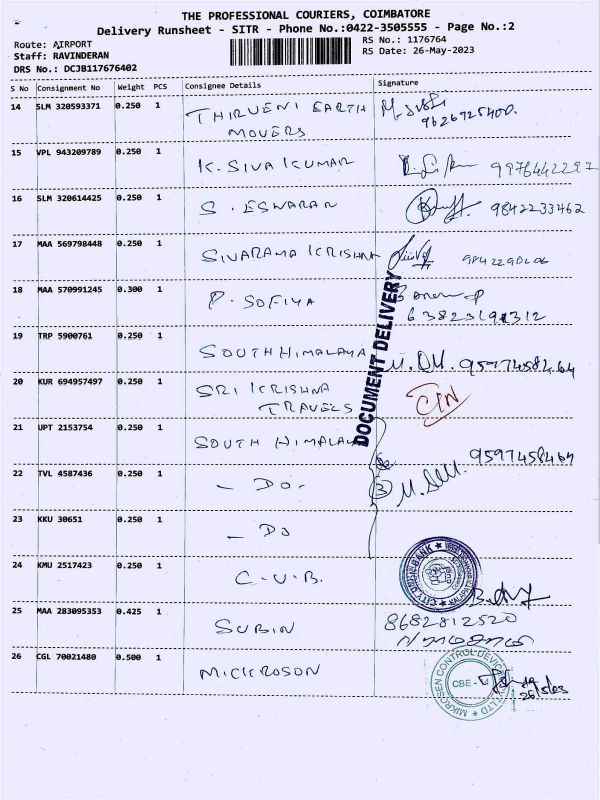 THE PROFESSIONAL COURIERS, COIMBATORE
Delivery Runsheet - SITR - Phone No.:0422-3505555 - Page No.:2
Route: AIRPORT
Staff: RAVINDERAN
DRS No.: DCJB117676402
RS No.: 1176764
RS Date: 26-May-2023
S No Consignment No Weight PCS Consignee Details Signature
14 SLM 320593371 0.250 1 THIRUVENI EARTH
MOVERS
9626925400.
15 VPL 943209789 0.250 1 K. SIVA KUMAR
16 SLM 320614425 0.250 1 S. ESWARAN 9842233462
17 MAA 569798448 0.250 1 SIVARAMA KRISHNA
18 MAA 570991245 0.300 1 P. SOFIYA
DOCUMENT DELIVERY
19 TRP 5900761 0.250 1 SOUTH HIMALAYA 9597458464
20 KUR 694957497 0.250 1 SRI KRISHNA
TRAVELS
21 UPT 2153754 0.250 1 SOUTH HIMALAYA 9597458464
22 TVL 4587436 0.250 1 - DO- 3
23 KKU 30651 0.250 1 - DO
24 KMU 2517423 0.250 1 C.U.B.
CITY UNION BANK
25 MAA 283095353 0.425 1 SUBIN 8682812520
26 CGL 70021480 0.500 1 MICKROSON
CBE -
26/5/23